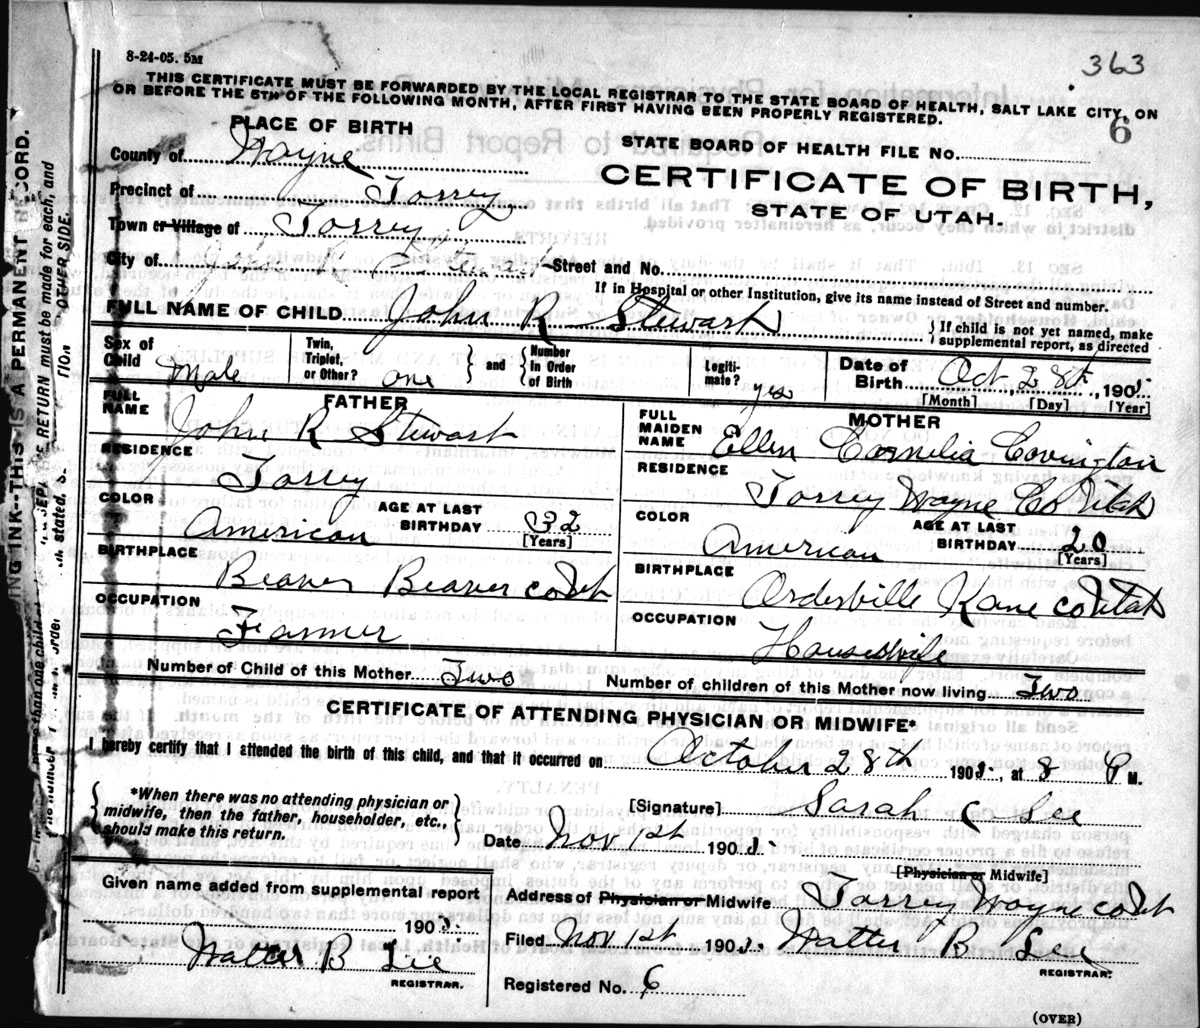 8-24-05. 5M
363
THIS CERTIFICATE MUST BE FORWARDED BY THE LOCAL REGISTRAR TO THE STATE BOARD OF HEALTH, SALT LAKE CITY, ON
OR BEFORE THE 5TH OF THE FOLLOWING MONTH, AFTER FIRST HAVING BEEN PROPERLY REGISTERED.
6
PLACE OF BIRTH
STATE BOARD OF HEALTH FILE No.
County of Wayne
CERTIFICATE OF BIRTH,
Precinct of Torrey
STATE OF UTAH.
Town or Village of Torrey
City of
Street and No.
If in Hospital or other Institution, give its name instead of Street and number.
FULL NAME OF CHILD John R Stewart
If child is not yet named, make
supplemental report, as directed
Sex of Child Male
Twin, Triplet, or Other? one
and
Number in Order of Birth
Legitimate? yes
Date of Birth Oct. 28th, 1905.
[Month] [Day] [Year]
FATHER
MOTHER
FULL NAME John R Stewart
FULL MAIDEN NAME Ellen Cornelia Covington
RESIDENCE Torrey
RESIDENCE Torrey Wayne Co Utah
COLOR American
AGE AT LAST BIRTHDAY 32 [Years]
COLOR American
AGE AT LAST BIRTHDAY 20 [Years]
BIRTHPLACE Beaver Beaver co Utah
BIRTHPLACE Orderville Kane co Utah
OCCUPATION Farmer
OCCUPATION Housewife
Number of Child of this Mother Two
Number of children of this Mother now living Two
CERTIFICATE OF ATTENDING PHYSICIAN OR MIDWIFE*
I hereby certify that I attended the birth of this child, and that it occurred on October 28th 1905., at 8 P M.
*When there was no attending physician or
midwife, then the father, householder, etc.,
should make this return.
[Signature] Sarah C Lee
Date Nov 1st 1905.
[Physician or Midwife]
Given name added from supplemental report
1905.
Address of Physician or Midwife Torrey Wayne co Utah
Filed Nov 1st 1905. Walter B Lee
REGISTRAR.
Walter B Lee
REGISTRAR.
Registered No. 6
(OVER)
THIS IS A PERMANENT RECORD.
RETURN must be made for each, and
OTHER SIDE.